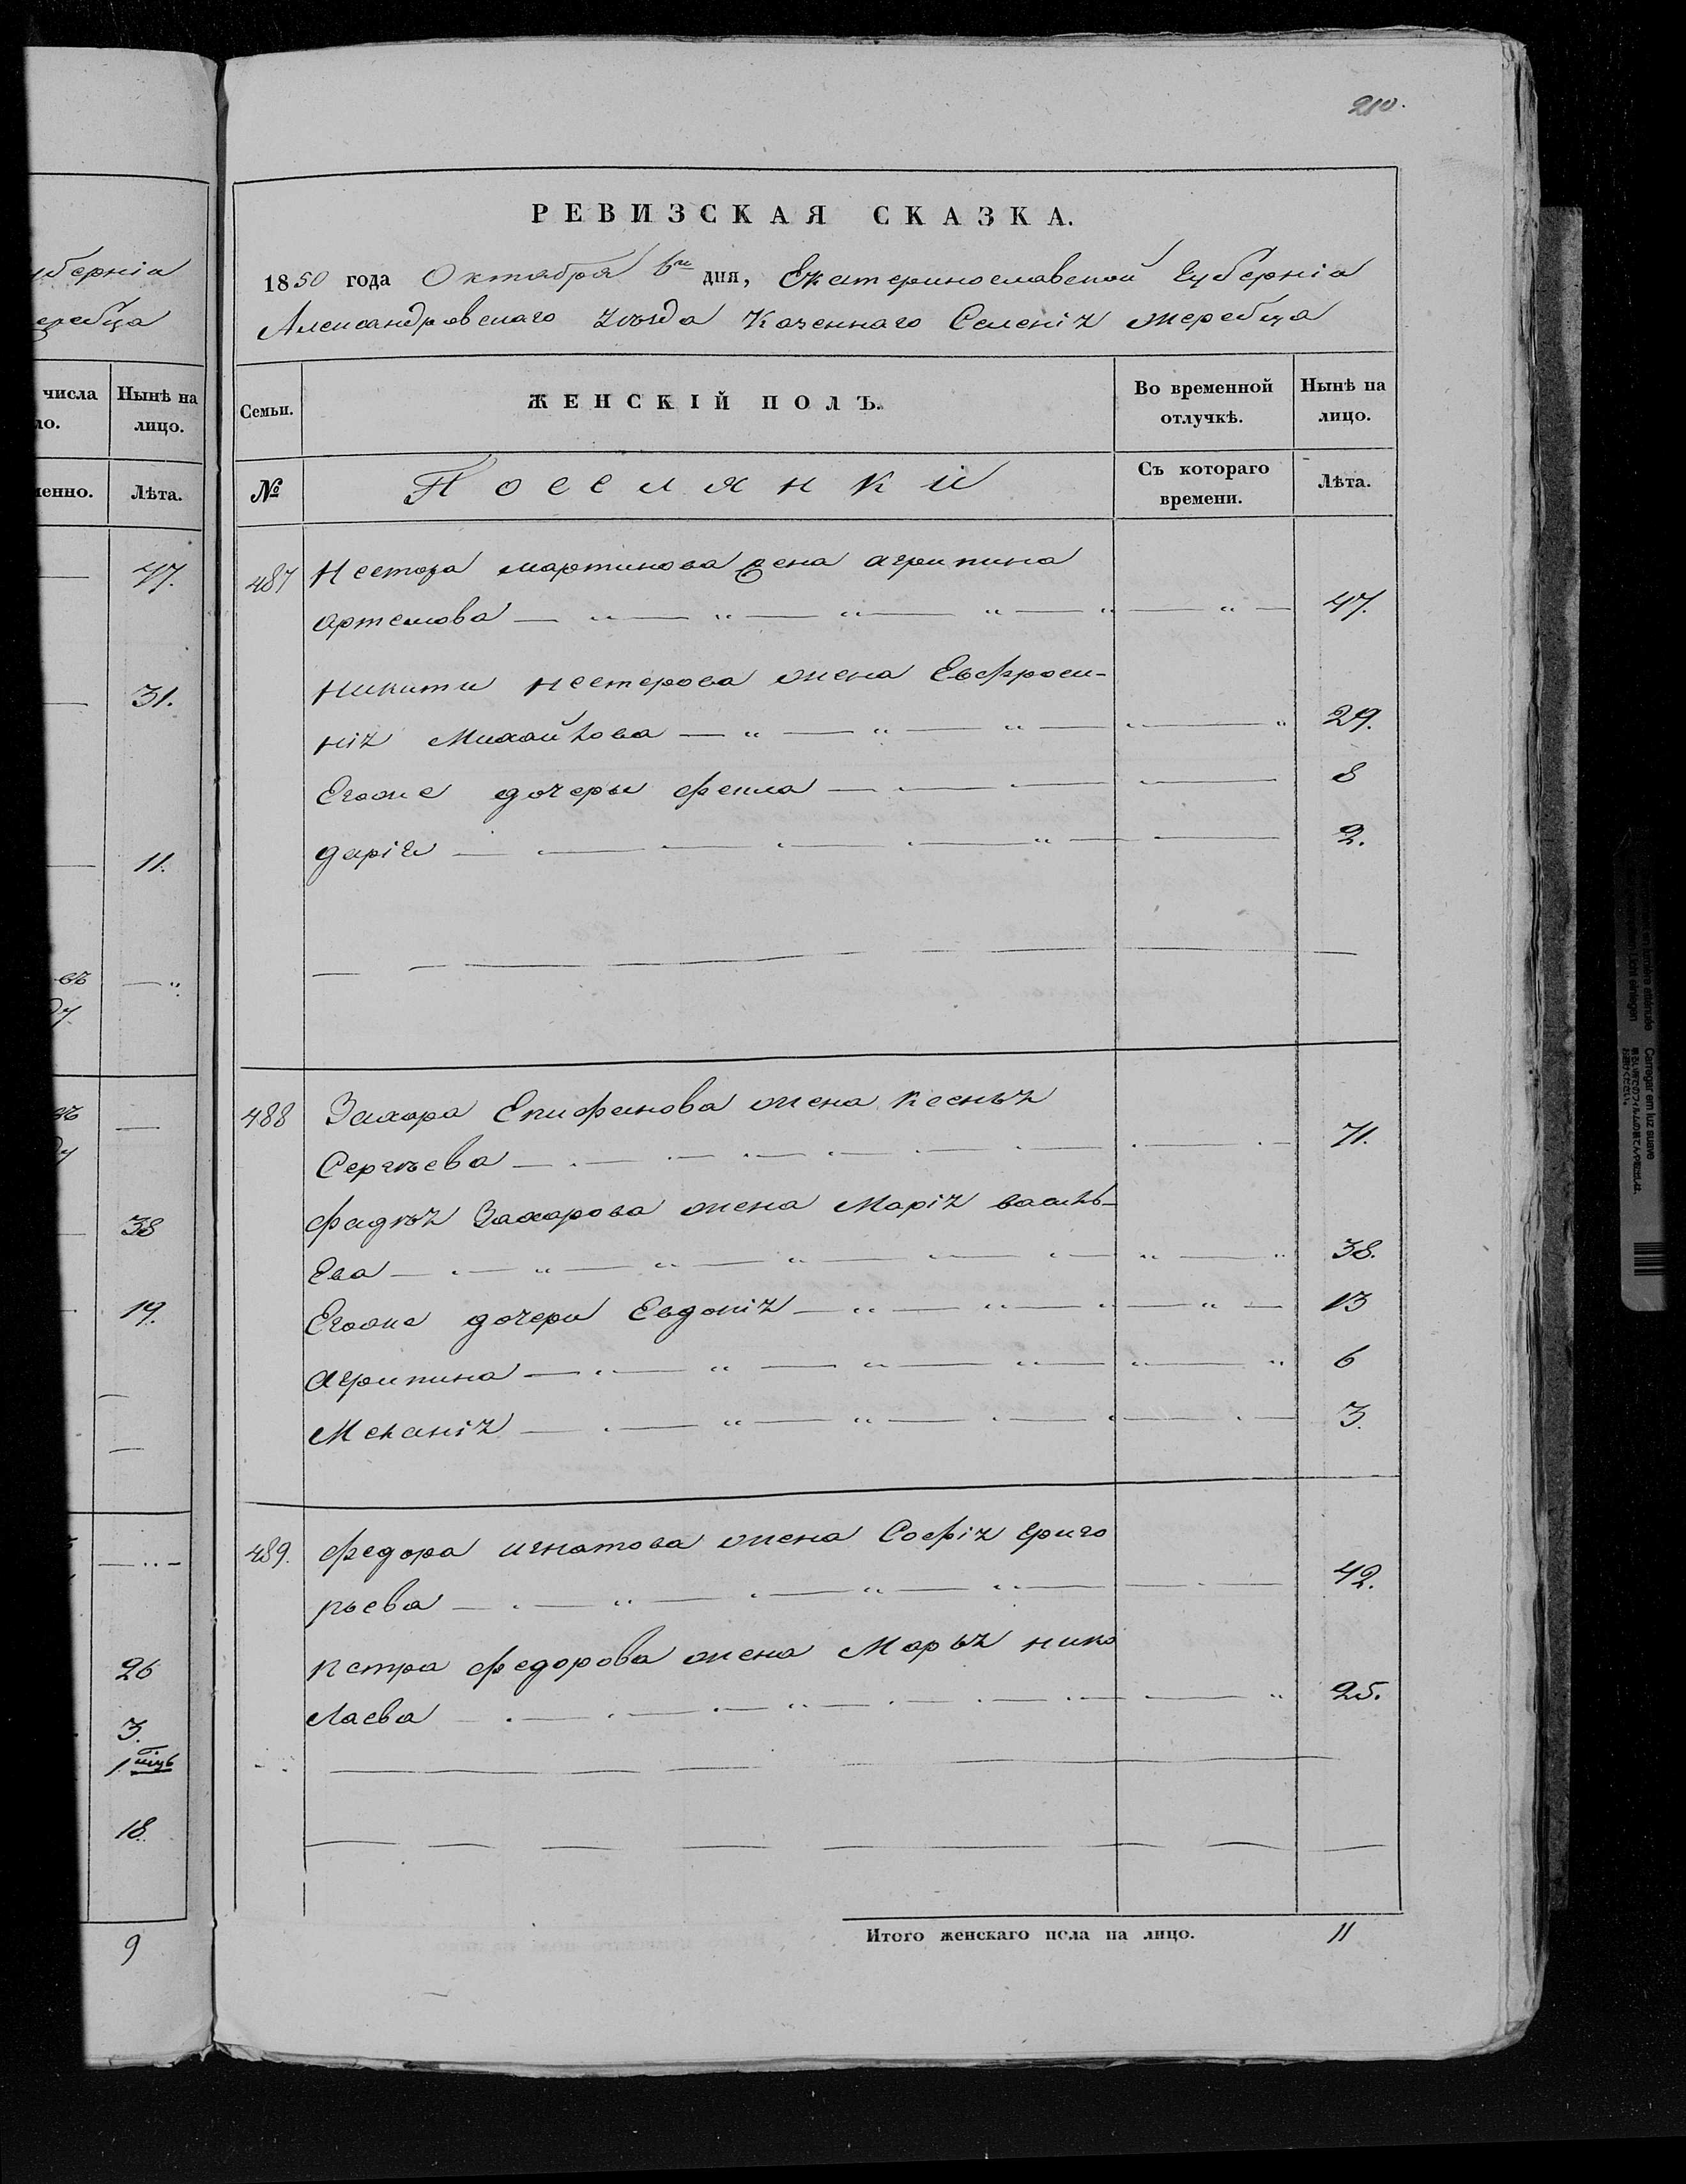 210.
РЕВИЗСКАЯ СКАЗКА.
1850 года Октября 6го дня, Екатеринославской Губерніи
Александровскаго уѣзда Казеннаго Селенія жеребца
Семьи.
ЖЕНСКІЙ ПОЛЪ.
Во временной отлучкѣ.
Нынѣ на лицо.
№
Поселянки
Съ котораго времени.
Лѣта.
487 Нестора мартинова жена агрипина
артемова 47.
Никиты нестерова жена Евфроси-
нія Михайлова 29.
Егоже дочеры фекла 8
дарія 2.
488 Захара Епифанова жена ксенья
Сергѣева 71.
фадѣя Захарова жена Марія василь-
Ева 38.
Егоже дочери Евдокія 13
агрипина 6
Меланія 3.
489. федора игнатова жена Софія григо
рьева 42.
петра федорова жена Марья нико
лаева 25.
Итого женскаго пола на лицо. 11
уберніи
еребца
числа
Нынѣ на лицо.
ло.
менно.
Лѣта.
47.
31.
11.
38
19.
26
3.
1 мѣц
18.
9